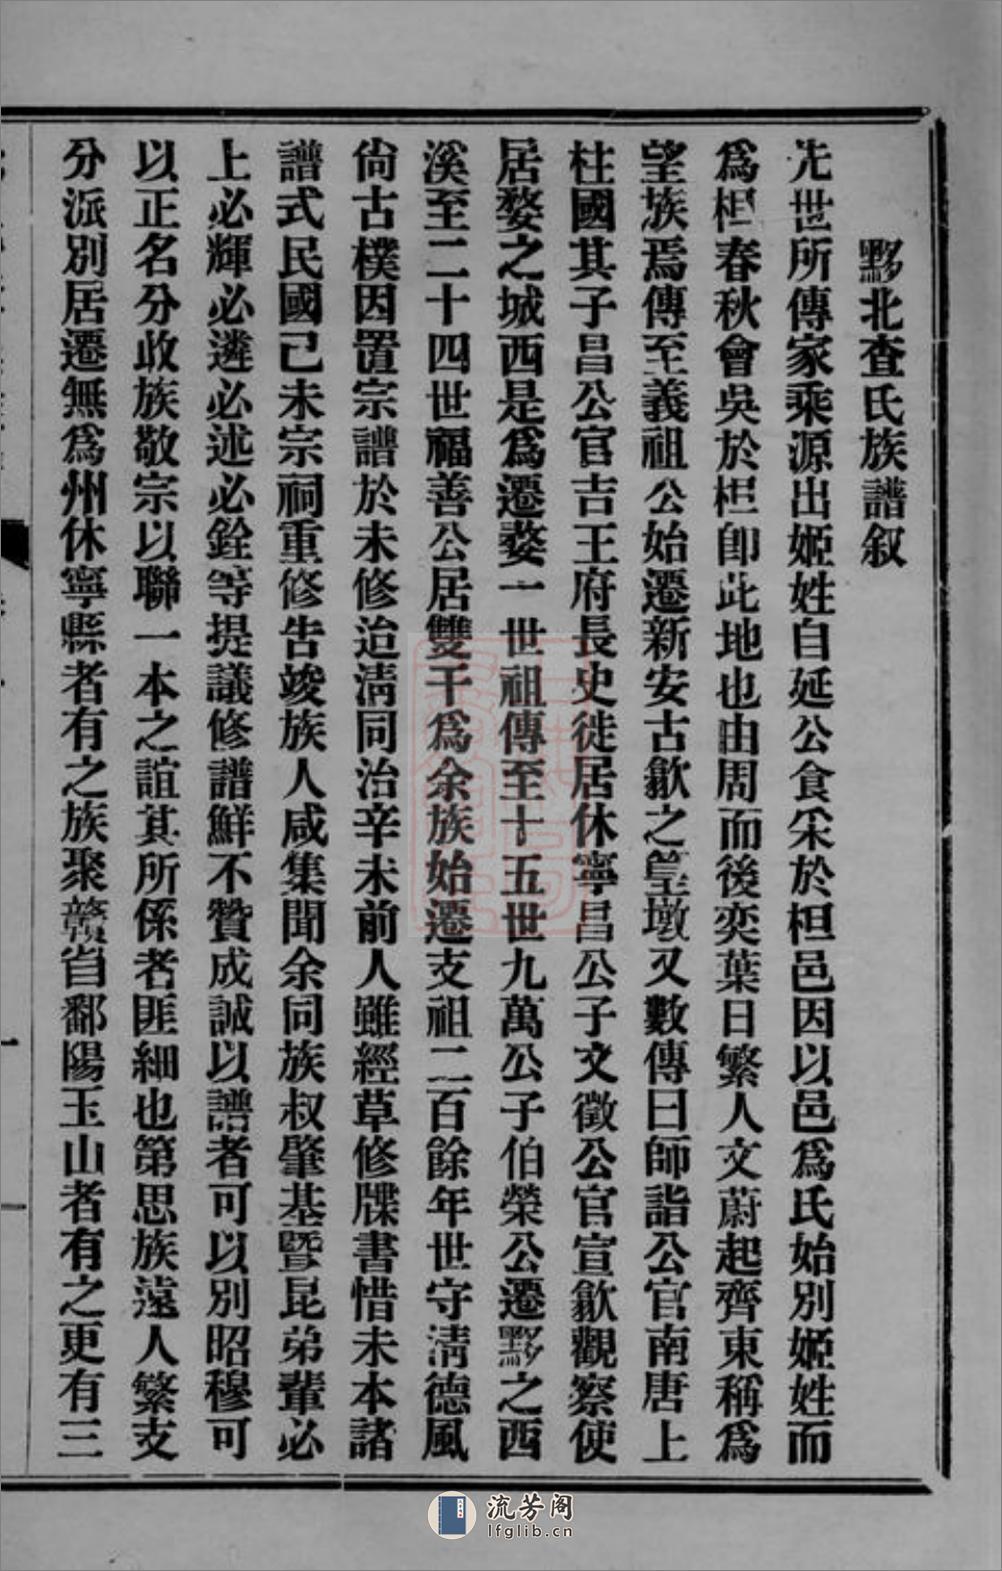 黟北查氏族譜叙
先世所傳家乘源出姬姓自延公食采於柤邑因以邑爲氏始別姬姓而
爲柤春秋會吳於柤卽此地也由周而後奕葉日繁人文蔚起齊東稱爲
望族焉傳至義祖公始遷新安古歙之篁墩又數傳曰師詣公官南唐上
柱國其子昌公官吉王府長史徙居休寧昌公子文徵公官宣歙觀察使
居婺之城西是爲遷婺一世祖傳至十五世九萬公子伯榮公遷黟之西
溪至二十四世福善公居雙干爲余族始遷支祖二百餘年世守淸德風
尙古樸因置宗譜於未修迨淸同治辛未前人雖經草修牒書惜未本諸
譜式民國己未宗祠重修告竣族人咸集聞余同族叔肇基暨昆弟輩必
上必輝必遴必述必銓等提議修譜鮮不贊成誠以譜者可以別昭穆可
以正名分收族敬宗以聯一本之誼其所係者匪細也第思族遠人繁支
分派別居遷無爲州休寧縣者有之族聚贛省鄱陽玉山者有之更有三
流芳阁
lfglib.cn